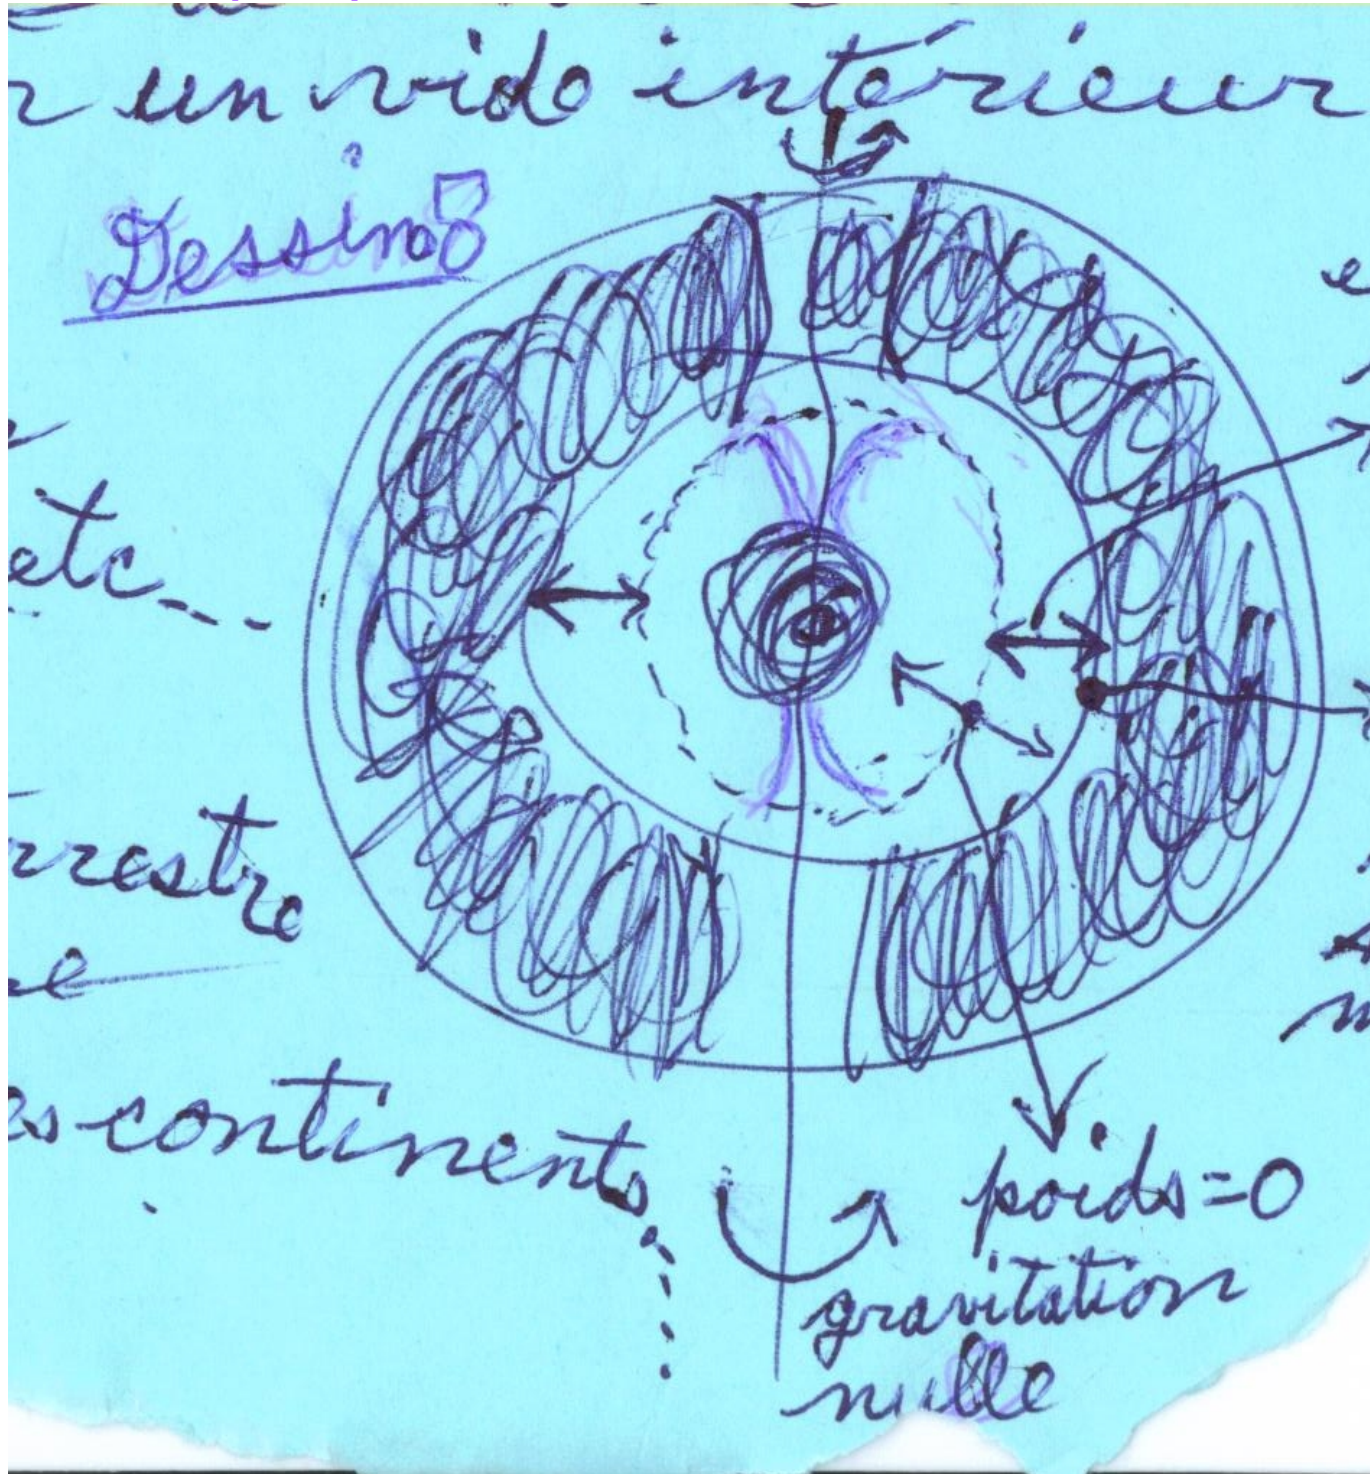 r un vide intérieur
Dessin:
etc---
rrestre
e
es continents
poids=0
gravitation
nulle